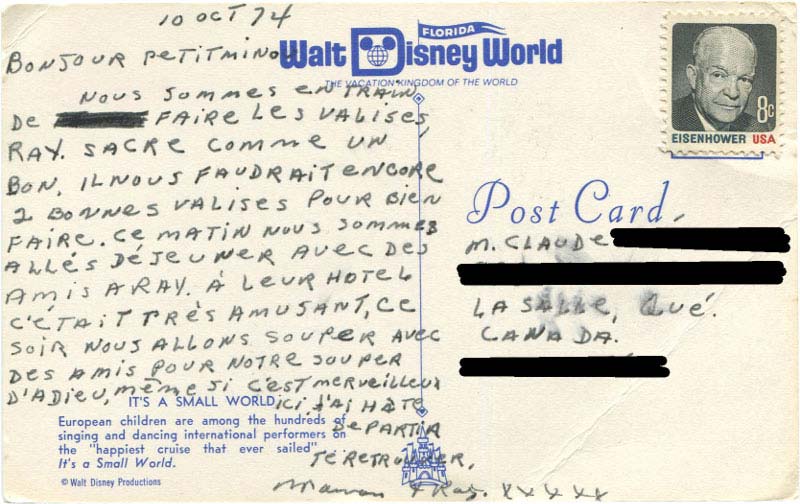 10 OCT 74
BONJOUR PETITMINOU
NOUS SOMMES EN TRAIN
DE FAIRE LES VALISES,
RAY. SACRE COMME UN
BON. IL NOUS FAUDRAIT ENCORE
2 BONNES VALISES POUR BIEN
FAIRE. CE MATIN NOUS SOMMES
ALLÉS DÉJEUNER AVEC DES
AMIS A RAY. À LEUR HOTEL
C'ÉTAIT TRÈS AMUSANT, CE
SOIR NOUS ALLONS SOUPER AVEC
DES AMIS POUR NOTRE SOUPER
D'ADIEU, MÊME SI C'EST MERVEILLEUX
ICI J'AI HÂTE
DE PARTIR
TE RETROUVER,
Maman & Ray. XXXXX
FLORIDA
Walt Disney World
THE VACATION KINGDOM OF THE WORLD
8c
EISENHOWER USA
Post Card
M. CLAUDE
LASALLE, QUÉ.
CANADA.
IT'S A SMALL WORLD
European children are among the hundreds of
singing and dancing international performers on
the "happiest cruise that ever sailed"
It's a Small World.
© Walt Disney Productions